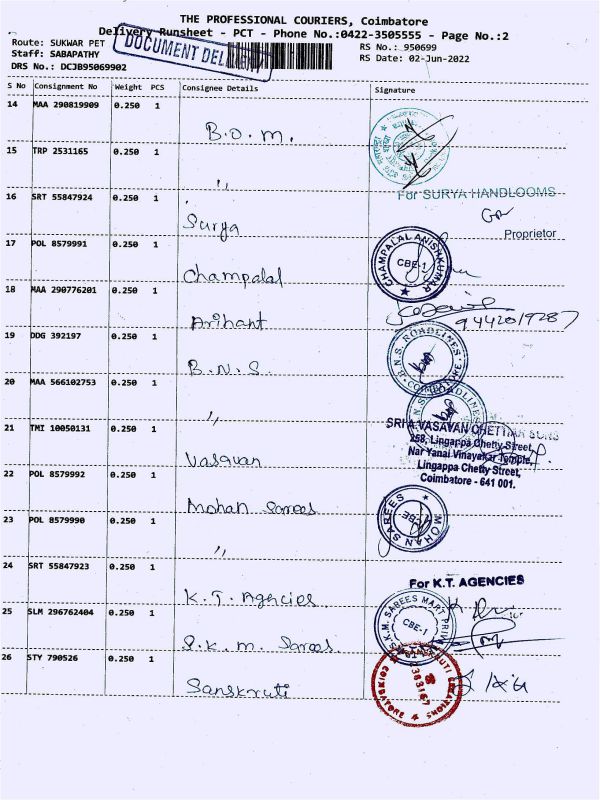 THE PROFESSIONAL COURIERS, Coimbatore
Delivery Runsheet - PCT - Phone No.:0422-3505555 - Page No.:2
Route: SUKWAR PET
RS No.: 950699
Staff: SABAPATHY
RS Date: 02-Jun-2022
DRS No.: DCJB95069902
DOCUMENT DEL
S No Consignment No Weight PCS Consignee Details Signature
14 MAA 290819909 0.250 1
B.O.M.
15 TRP 2531165 0.250 1
"
16 SRT 55847924 0.250 1
For SURYA HANDLOOMS
Surya
Proprietor
17 POL 8579991 0.250 1
CHAMPALAL ANISHKUMAR
CBE-1
Champalal
18 MAA 290776201 0.250 1
Arihant
9442019287
19 DDG 392197 0.250 1
B.N.S. ROADLINES
COIMBATORE
B.N.S.
20 MAA 566102753 0.250 1
"
21 TMI 10050131 0.250 1
SRI A.VASAVAN CHETTIAR SONS
258, Lingappa Chetty Street,
Nar Yanai Vinayakar Temple,
Lingappa Chetty Street,
Coimbatore - 641 001.
Vasavan
22 POL 8579992 0.250 1
Mohan Sarees
MOHAN SAREES
CBE
23 POL 8579990 0.250 1
"
24 SRT 55847923 0.250 1
For K.T. AGENCIES
K.T. Agencies
25 SLM 296762404 0.250 1
S.K.M. SAREES MART
CBE-1
S.K.M. Sarees
26 STY 790526 0.250 1
COIMBATORE
Sanskruti